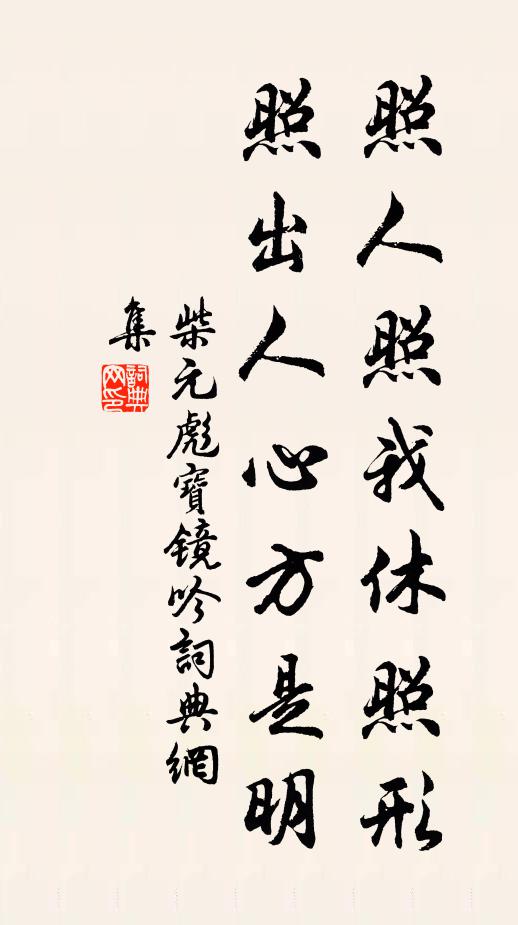 照人照我休照形
照出人心方是明
柴元彪寶鏡吟詞典網
集
詞典
网印